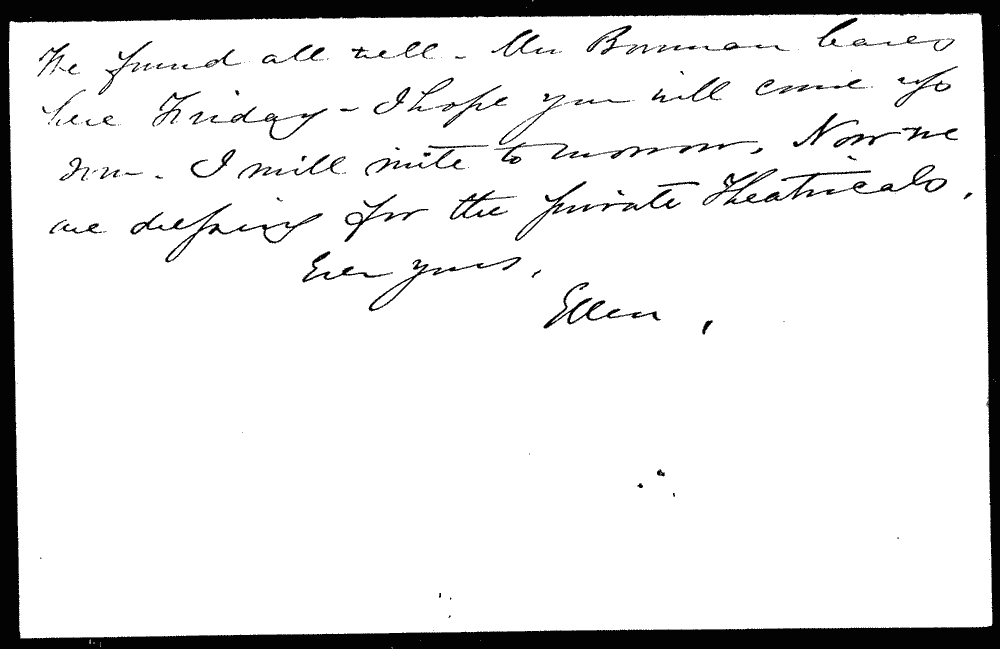 We found all well - Mrs Bowman leaves
here Friday - I hope you will come up
soon - I will write to morrow. Now we
are dressing for the private Theatricals.
Ever yours,
Ellen.